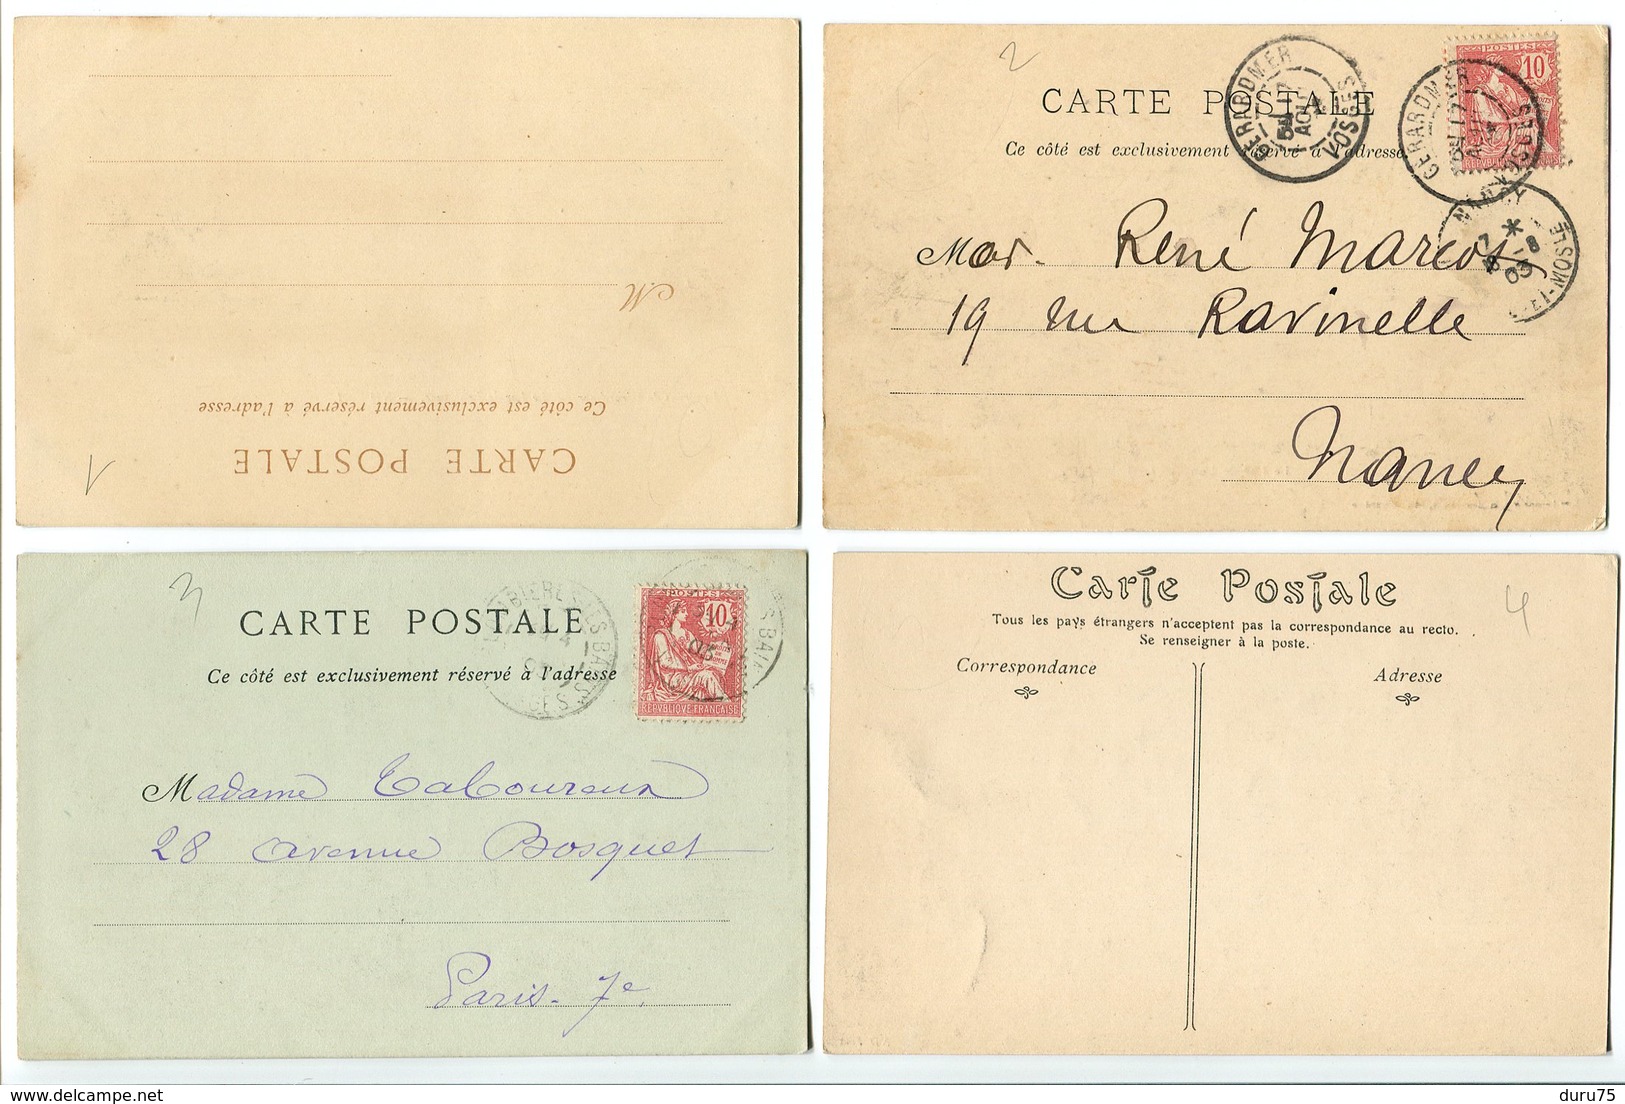 CARTE POSTALE
Ce côté est exclusivement réservé à l'adresse
M
1
2
CARTE POSTALE
Ce côté est exclusivement réservé à l'adresse
POSTES
10
GERARDMER
VOSGES
AOUT
GERARDMER
VOSGES
NANCY
7 *
-8
03
Mr. René Marcot
19 rue Ravinelle
Nancy
3
CARTE POSTALE
Ce côté est exclusivement réservé à l'adresse
POSTES
10
REPVBLIQVE FRANÇAISE
Madame Taboureux
28 avenue Bosquet
Paris. 7e
4
Carte Postale
Tous les pays étrangers n'acceptent pas la correspondance au recto.
Se renseigner à la poste.
Correspondance
Adresse
delcampe.net
duru75